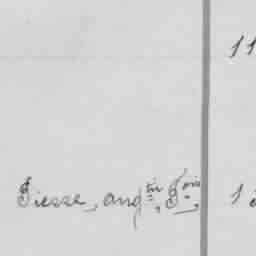 11
Piesse, augtin Fois, 1